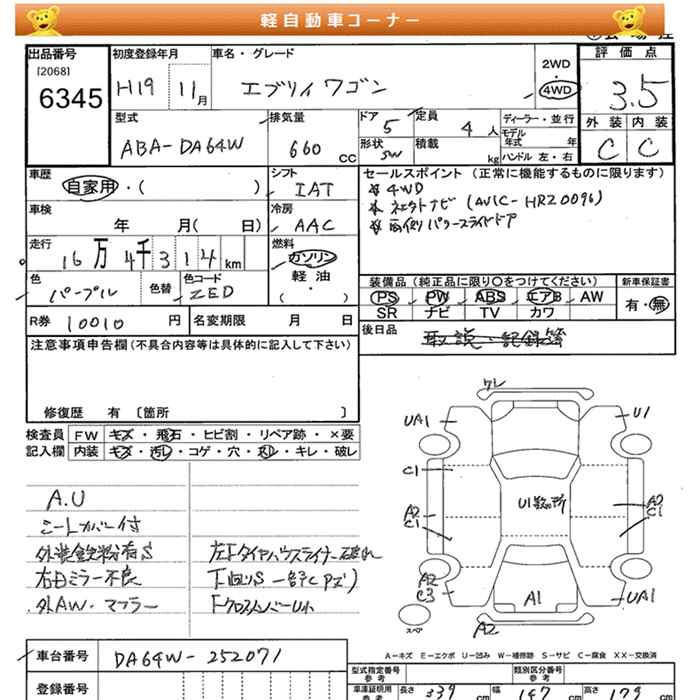 軽自動車コーナー
出品番号 初度登録年月 車名・グレード 評価点
[2068]
6345 H19 11月 エブリィ ワゴン 2WD・4WD 3.5
外装 内装
C C
型式 ABA-DA64W 排気量 660 cc
ドア 5 定員 4人 ディーラー・並行
モデル年式 年
形状 SW 積載 kg ハンドル 左・右
車歴 自家用・( ) シフト IAT
セールスポイント (正常に機能するものに限ります)
※4WD
※ネクストナビ (AVIC-HRZ009G)
※両側パワースライドドア
車検 年 月( 日) 冷房 AAC
走行 16万4千314km 燃料 ガソリン
軽・油
・( )
色 パープル 色替 色コード ZED
装備品 (純正品に限り○をつけてください) 新車保証書
PS PW ABS エアB AW 有・無
SR ナビ TV カワ
R券 10010円 名変期限 月 日
後日品 取説・記録簿
注意事項申告欄(不具合内容等は具体的に記入して下さい)
修復歴 有 〔箇所 〕
検査員 FW キズ・飛石・ヒビ割・リペア跡・×要
記入欄 内装 キズ・汚レ・コゲ・穴・スレ・キレ・破レ
A.U
シートカバー付
外装鉄粉有S
右ミラー不良
外AW・マフラー
左Fタイヤハウスライナー破れ
下回りS一部C(Pズミ)
FクロスメンバーU小
クレ
UA1 U1
C1
U1数ヶ所
A2 A2
C1 C1
A2
C3 A1 UA1
スペア
A2
A-キズ E-エクボ U-凹み W-補修跡 S-サビ C-腐食 XX-交換済
車台番号 DA64W-252071
登録番号
型式指定番号 参考 類別区分番号 参考
車庫証明用 参考 長さ 339 cm 幅 147 cm 高さ 179 cm